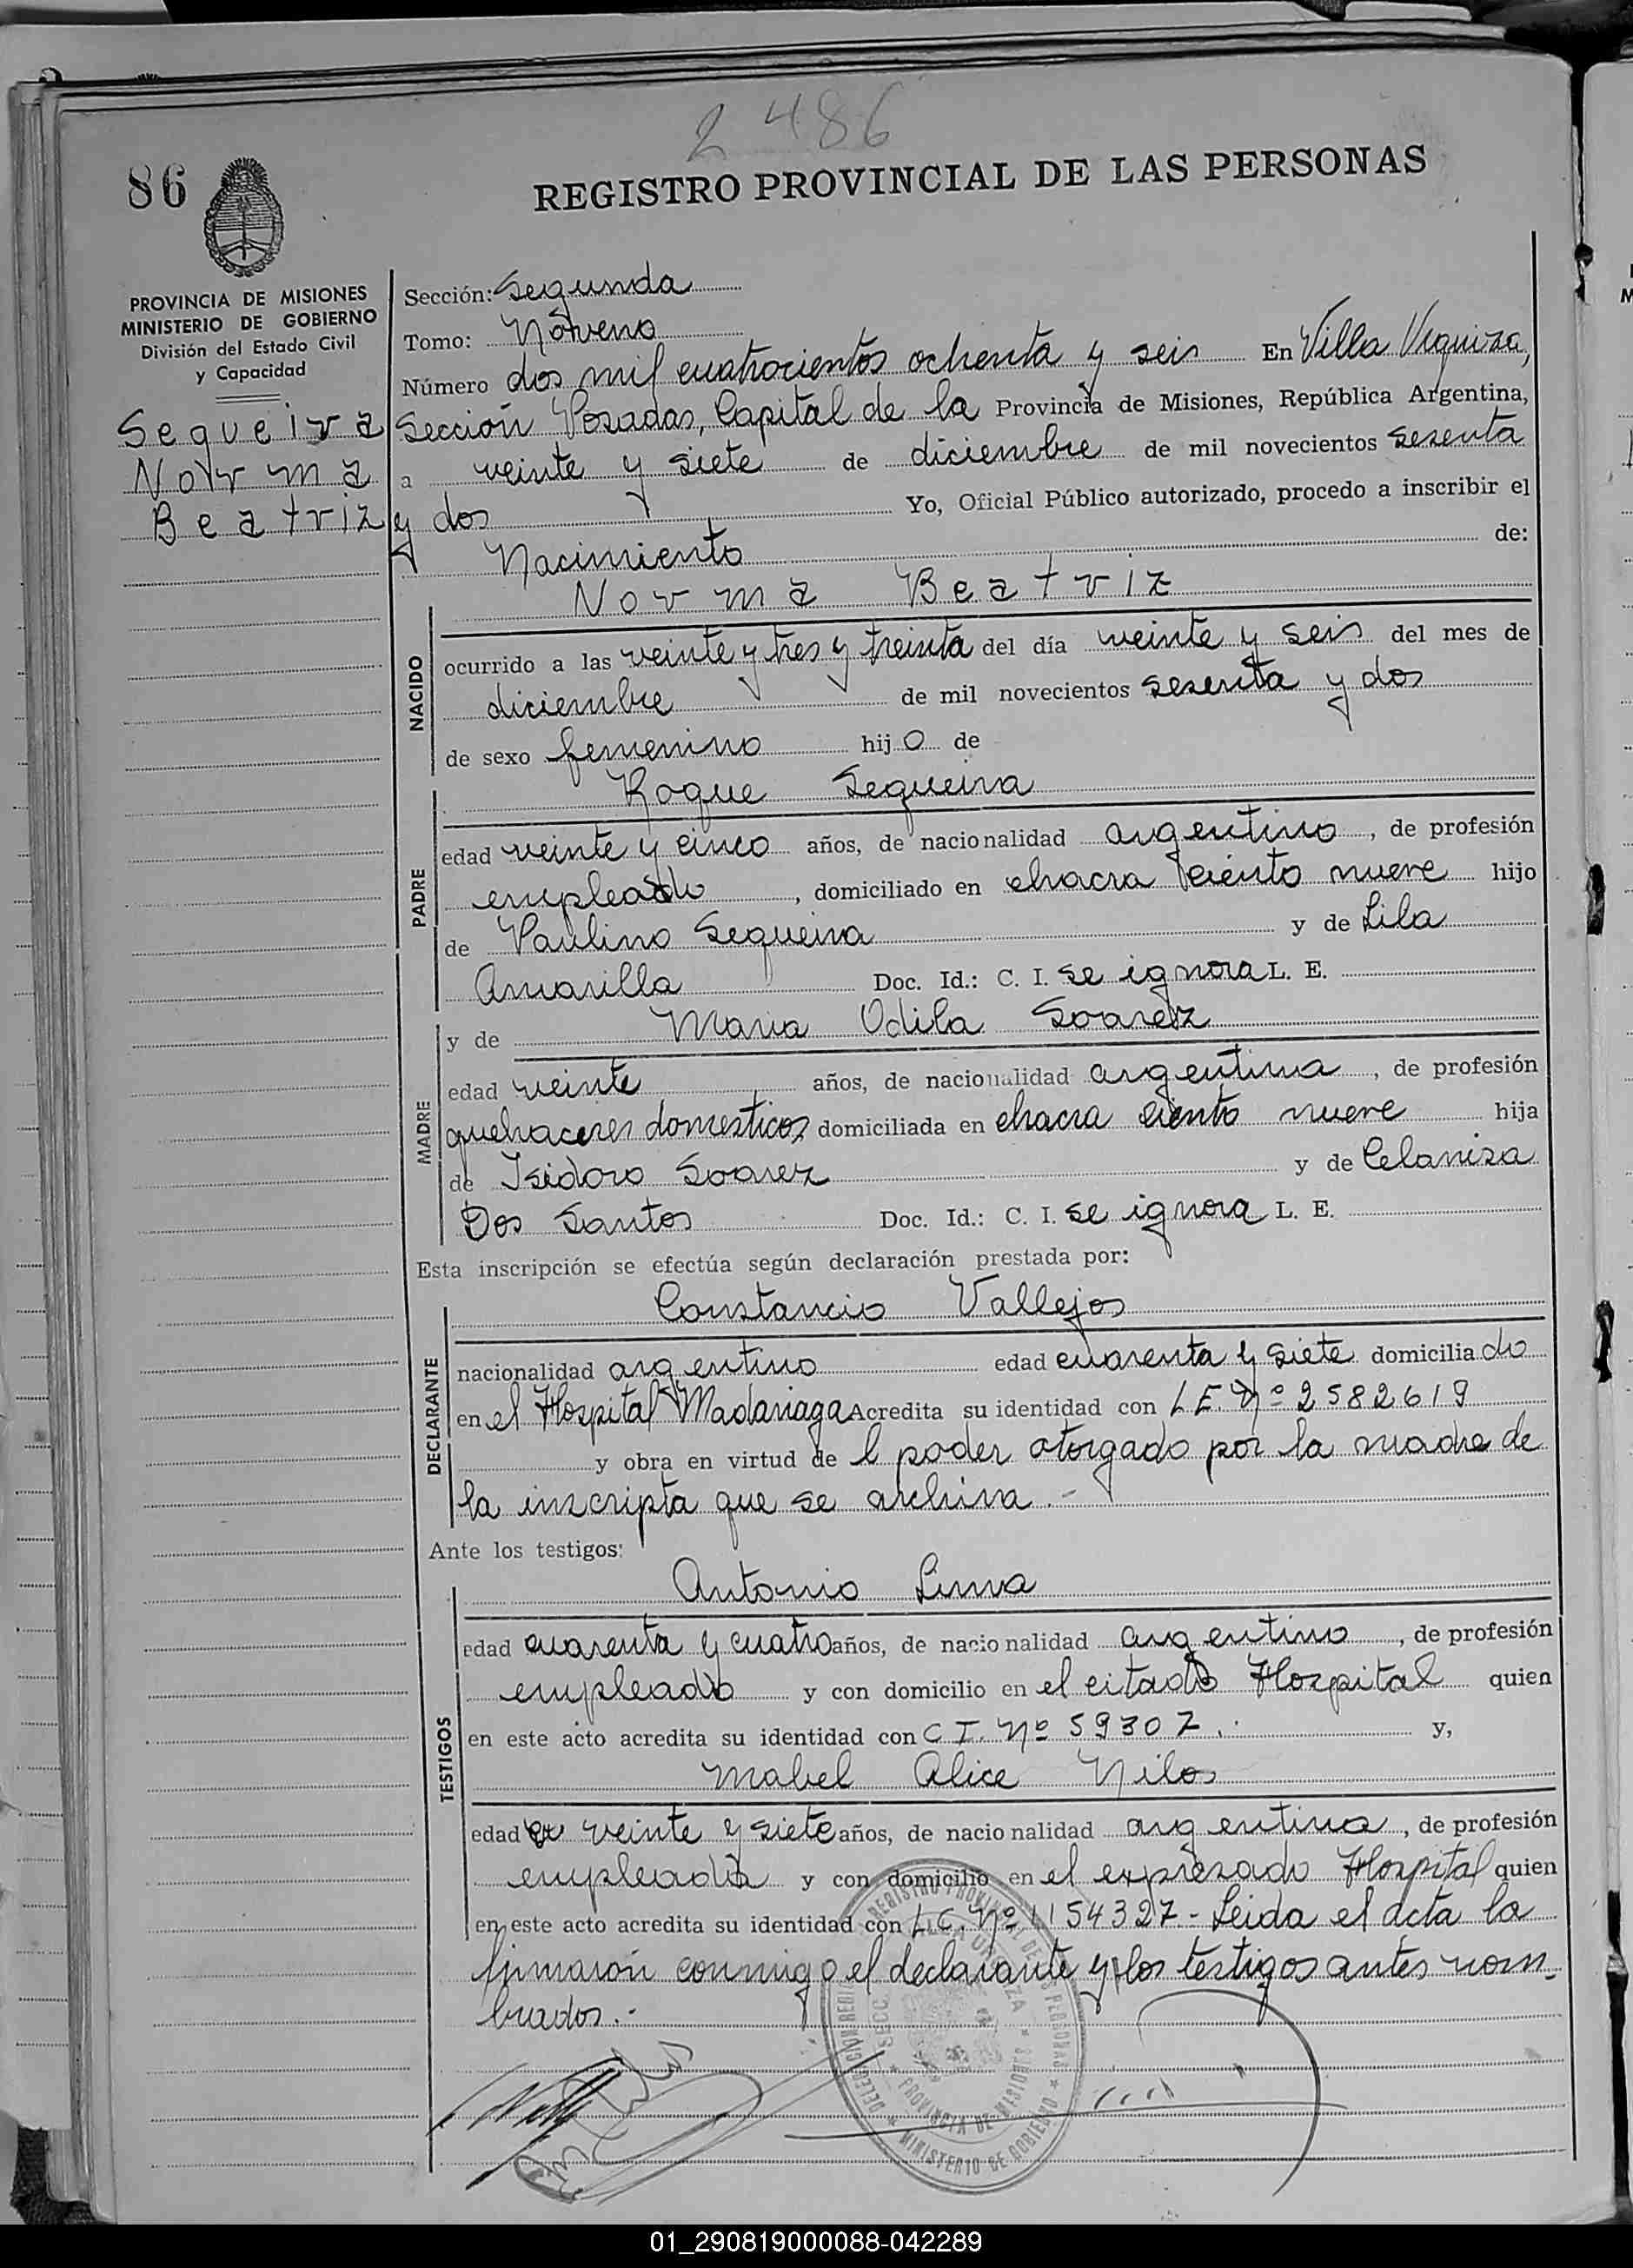 2486
86
REGISTRO PROVINCIAL DE LAS PERSONAS
PROVINCIA DE MISIONES
MINISTERIO DE GOBIERNO
División del Estado Civil
y Capacidad
Sequeira
Norma
Beatriz
Sección: Segunda
Tomo: Noveno
Número dos mil cuatrocientos ochenta y seis En Villa Urquiza,
Sección Posadas, Capital de la Provincia de Misiones, República Argentina,
a veinte y siete de diciembre de mil novecientos sesenta
y dos Yo, Oficial Público autorizado, procedo a inscribir el
Nacimiento de:
Norma Beatriz
NACIDO
ocurrido a las veinte y tres y treinta del día veinte y seis del mes de
diciembre de mil novecientos sesenta y dos
de sexo femenino hijo de
Roque Sequeira
PADRE
edad veinte y cinco años, de nacionalidad argentino, de profesión
empleado, domiciliado en chacra ciento nueve hijo
de Paulino Sequeira y de Lila
Amarilla Doc. Id.: C. I. se ignora L. E.
y de Maria Odila Soarez
MADRE
edad veinte años, de nacionalidad argentina, de profesión
quehaceres domesticos domiciliada en chacra ciento nueve hija
de Isidoro Soarez y de Celaniza
Dos Santos Doc. Id.: C. I. se ignora L. E.
Esta inscripción se efectúa según declaración prestada por:
Constancio Vallejos
DECLARANTE
nacionalidad argentino edad cuarenta y siete domiciliado
en el Hospital Madariaga Acredita su identidad con L E. Nº 2582619
y obra en virtud de l poder otorgado por la madre de
la inscripta que se archiva.-
Ante los testigos:
Antonio Lima
TESTIGOS
edad cuarenta y cuatro años, de nacionalidad argentino, de profesión
empleado y con domicilio en el citado Hospital quien
en este acto acredita su identidad con C I. Nº 59307. y,
Mabel Alice Nilos
edad veinte y siete años, de nacionalidad argentina, de profesión
empleada y con domicilio en el expresado Hospital quien
en este acto acredita su identidad con L. C. Nº 1154327.- Leida el acta la
firmarón conmigo el declarante y los testigos antes nom-
brados.-
PROVINCIA DE MISIONES
MINISTERIO DE GOBIERNO
01_290819000088-042289